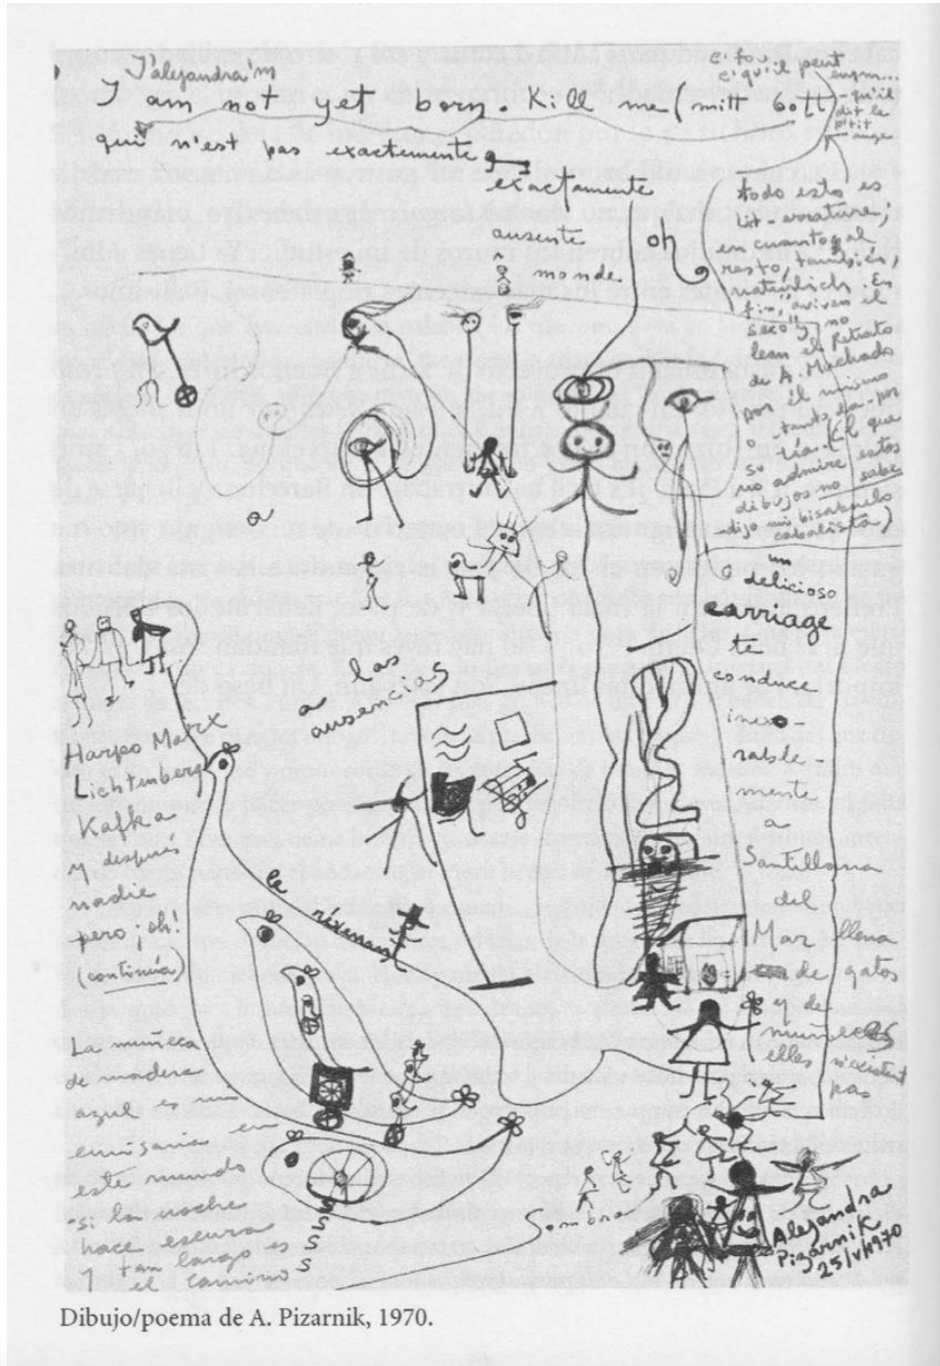 J'alejandra'm
I am not yet born. Kill me (mitt Gott)
qui n'est pas exactemente
exactamente
ausente
monde
oh
c'qu'il peut
qu'il
dit le
p'tit
ange
todo esto es
lit-errature;
en cuanto al
resto, también,
natürlich. En
fin, aviven el
seco!! y no
lean el Retrato
de A. Machado
por él mismo
o tanto da por
su tía. El que
no admire estos
dibujos no sabe
dijo mi bisabuelo
cabalista)
a
las
ausencias
un
delicioso
carriage
te
conduce
inexo-
rable-
mente
a
Santillana
del
Mar llena
de gatos
y de
muñecas
elles n'existent
pas
Harpo Marx
Lichtenberg
Kafka
y después
nadie
pero ¡oh!
(continúa)
le
La muñeca
de madera
azul es mi
emisaria en
este mundo
si la noche
hace escuras
y tan largo es
el camino
s
s
s
s
sombra
Alejandra
Pizarnik
25/V/1970
Dibujo/poema de A. Pizarnik, 1970.